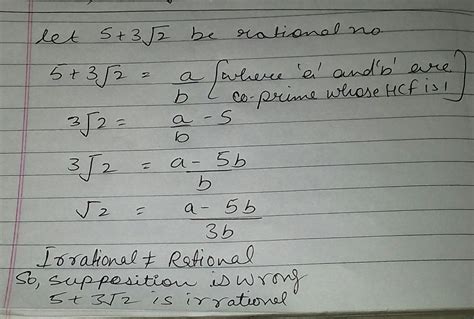 let 5+3√2 be rational no
5+3√2 = a/b [where 'a' and 'b' are co-prime whose HCF is 1]
3√2 = a/b - 5
3√2 = a - 5b/b
√2 = a - 5b/3b
Irrational ≠ Rational
So, supposition is wrong
5+3√2 is irrational